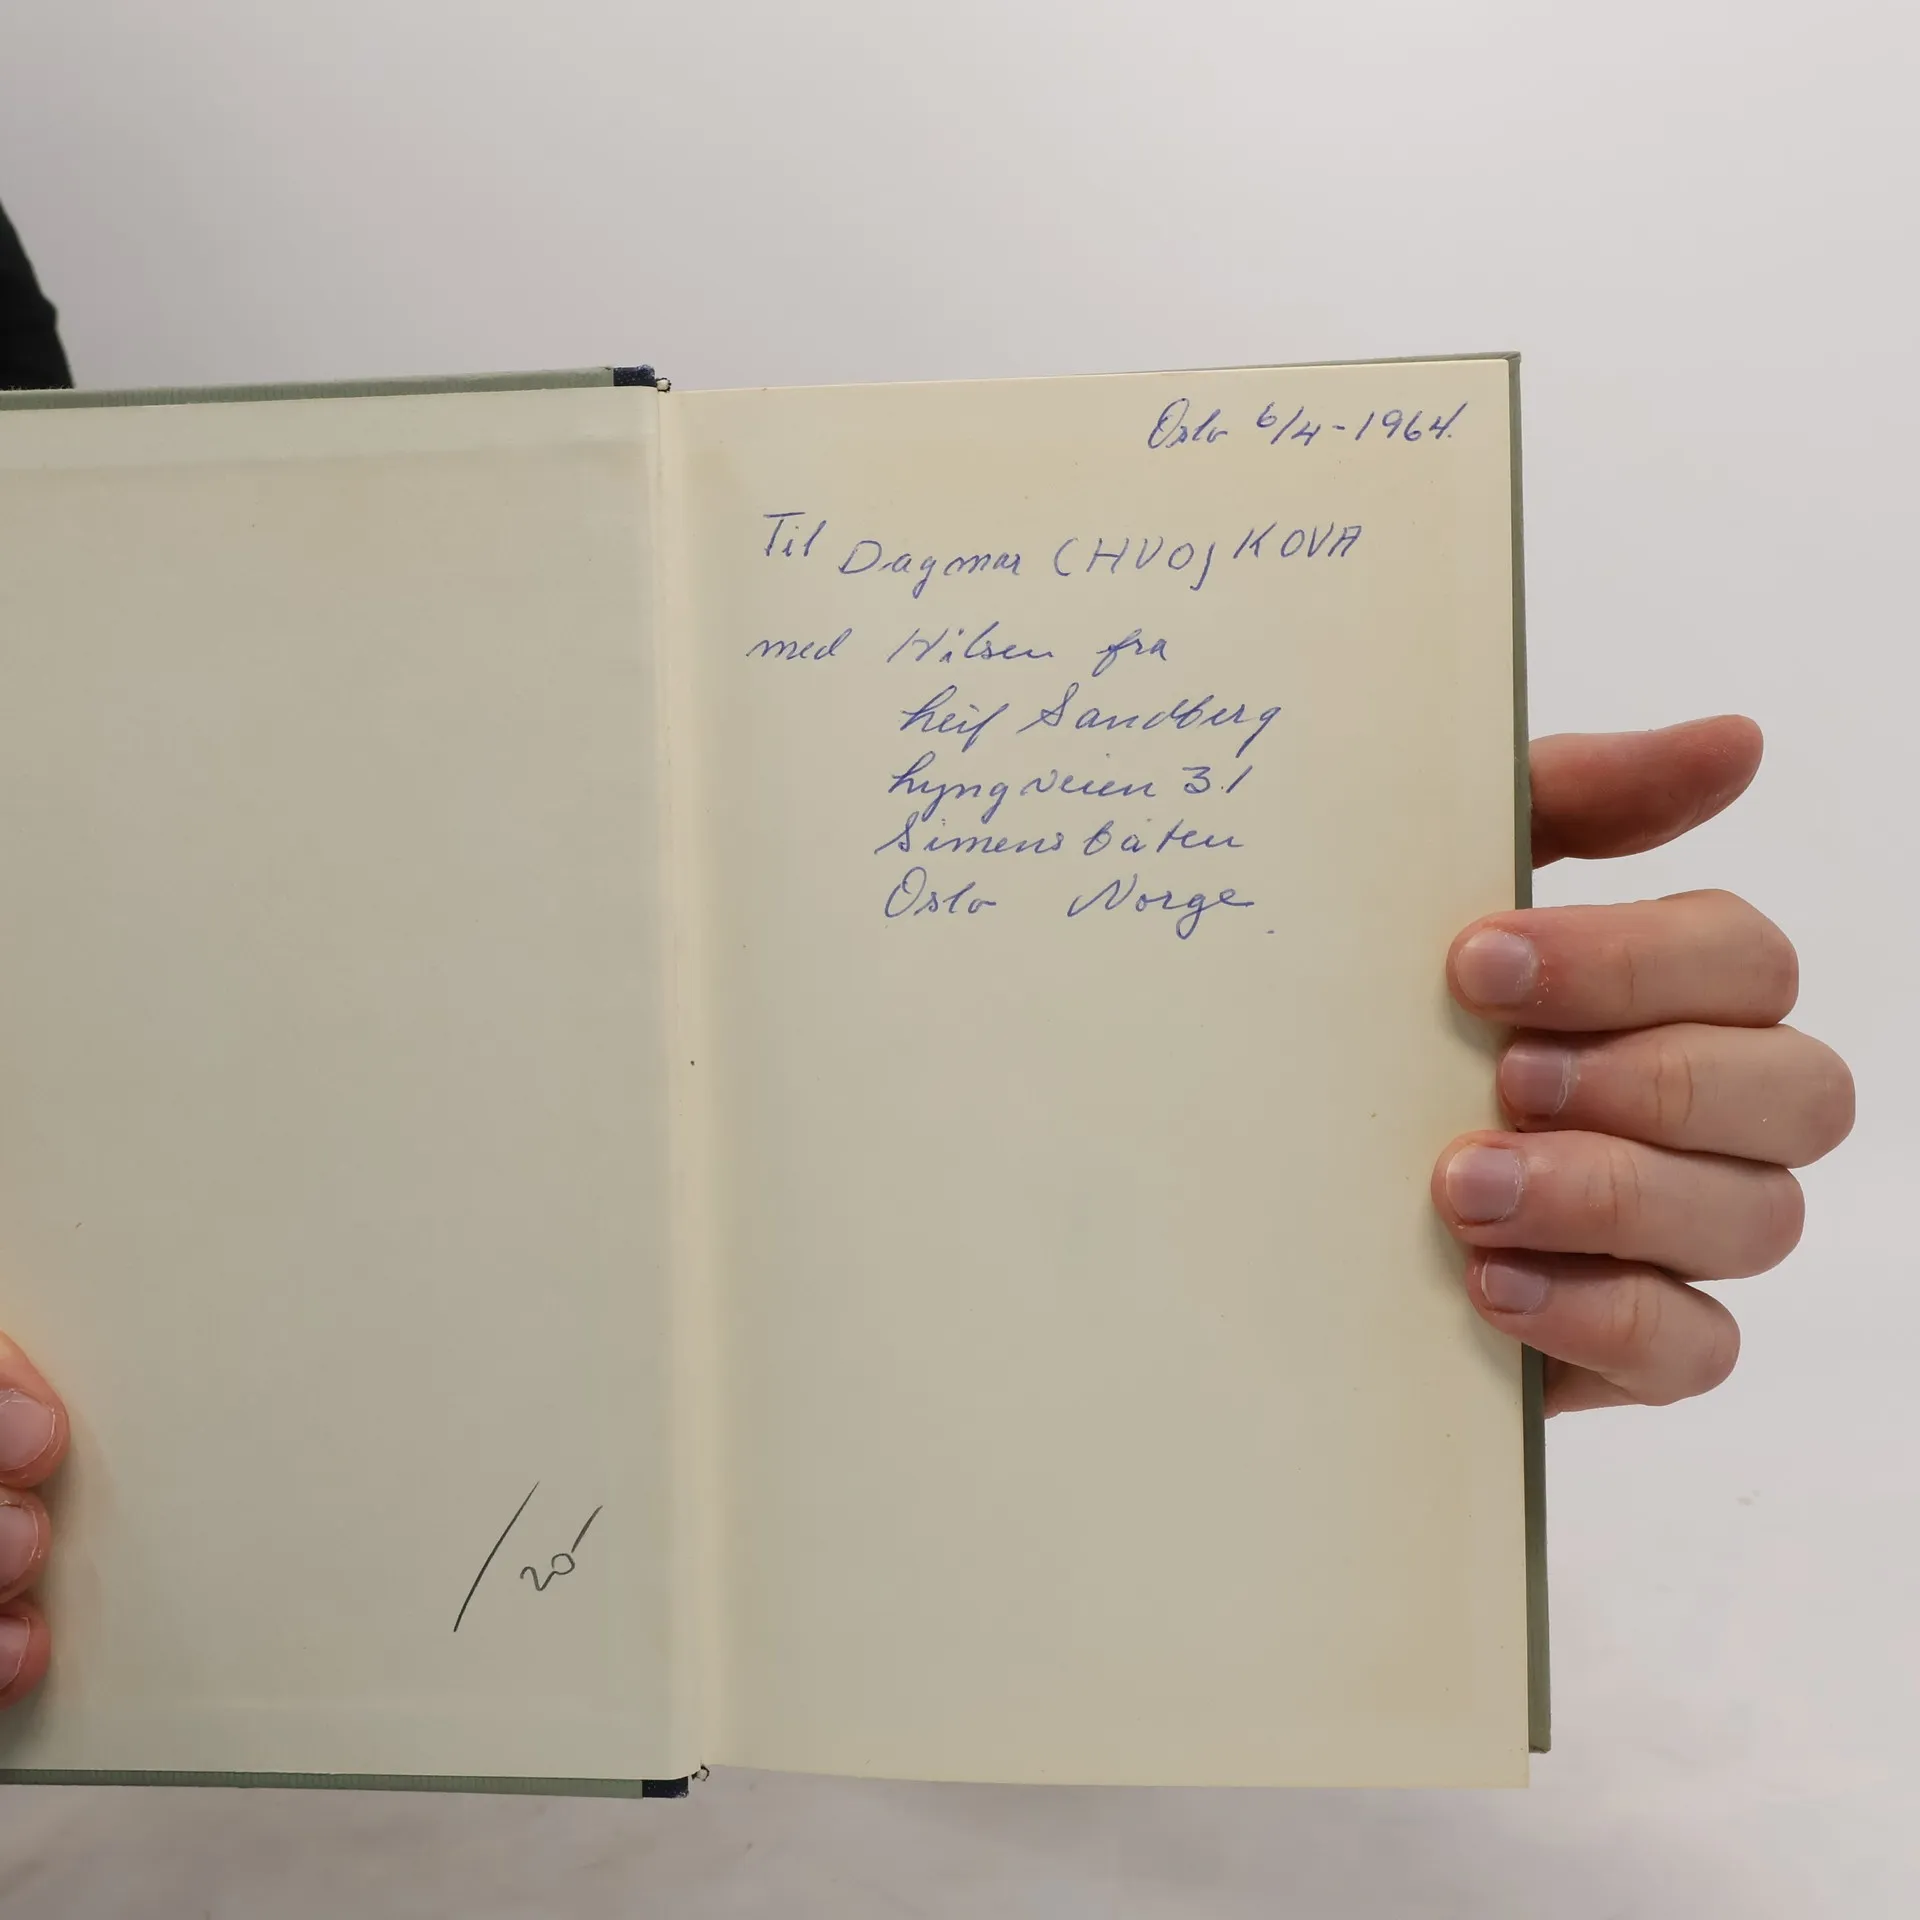 Oslo 6/4-1964.
Til Dagmar CHVOJKOVA
med Hilsen fra
Leif Sandberg
Lyngveien 31
Simensbråten
Oslo Norge.
/20